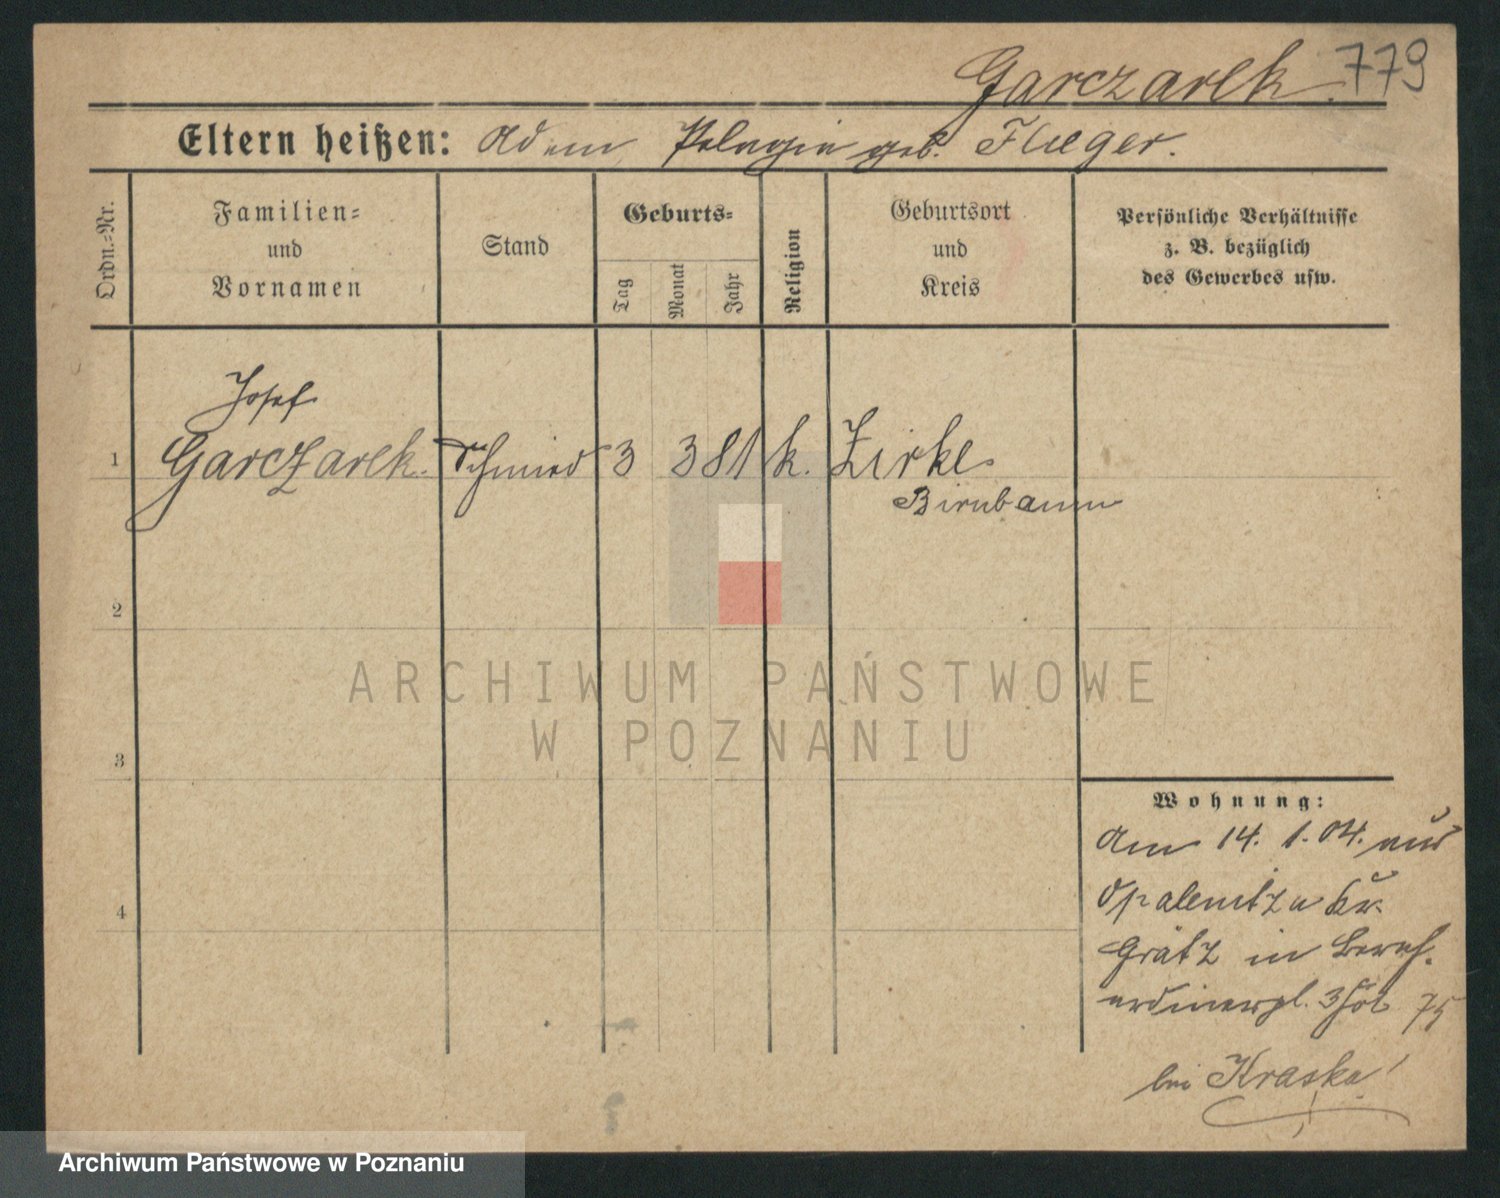 Garczarek. 779
Eltern heißen: Adam Pelagia geb. Flieger.
Ordn.=Nr.
Familien=
und
Vornamen
Stand
Geburts=
Tag
Monat
Jahr
Religion
Geburtsort
und
Kreis
Persönliche Verhältnisse
z. B. bezüglich
des Gewerbes usw.
Josef
1 Garczarek. Schmied 3 3 81 k. Zirke
Birnbaum
2
3
4
Wohnung:
Am 14. 1. 04. aus
Opalenitza Kr.
Grätz in
3 75
bei Kraska
ARCHIWUM PAŃSTWOWE
W POZNANIU
Archiwum Państwowe w Poznaniu